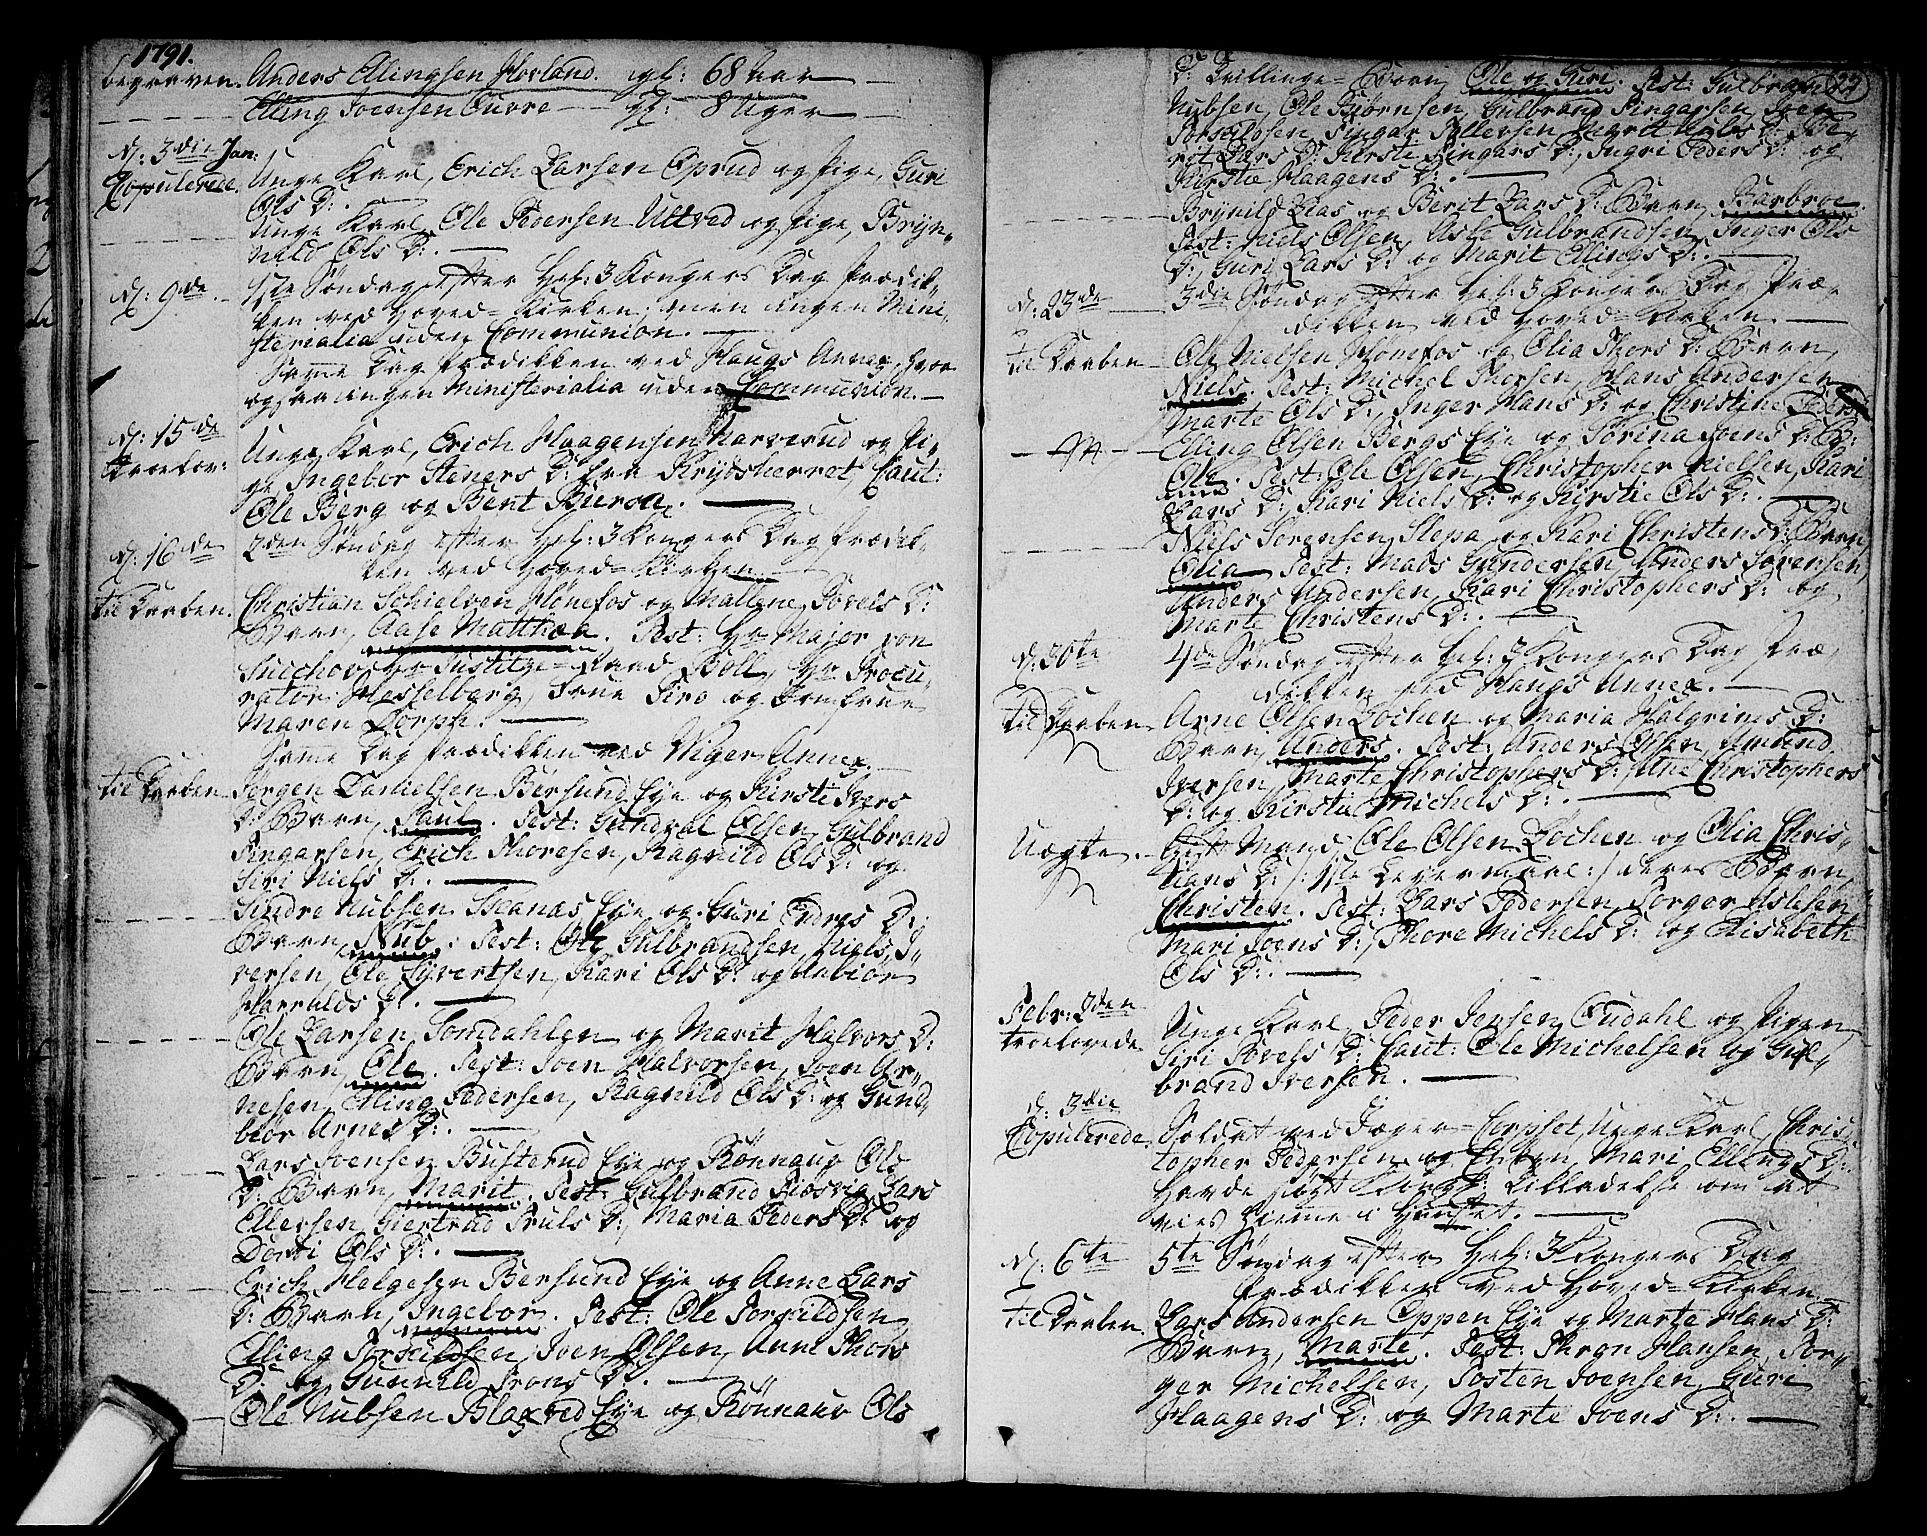 1791.
begraven. Anders Ellingsen Hovland. gl: 68 Aar
Elling Joensen Tuore gl: 8 Uger
d: 3die Jan:
Copulerede Unge Karl, Erich Larsen Oprud og Pige, Guri
Ols D:
Unge Karl, Ole Pedersen Ultved og Pige, Bryn-
nild Ols D:.
d: 9de 1ste Søndag efter Hel: 3 Kongers Dag Prædik-
ken ved Hoved-Kirken, men ingen Mini-
sterialia uden Communion.
Samme Dag Prædikken ved Haugs Annex, hvor
ogsaa ingen Ministerialia uden Communion.
d: 15de
Troelov: Unge Karl, Erich Haagensen Karverud og Pi-
ge Ingebor Steners D: fra Krydsherret Caut:
Ole Berg og Bent Buraa.
d: 16de 2den Søndag efter Hel: 3 Kongers Dag Prædik-
ken ved Hoved-Kirken
til Daaben. Christian Schielven Hønefos og Mallene Povels D:
Barn, Aase Matthea. Test: Hr Major von
Hr Justitz-Raad Boll, Hr Procu-
rator Hesselberg, Frue Piro og Jomfrue
Maren Dorph.
Samme Dag Prædikken ved Viger Annex.
til Daaben Jørgen Danielsen Børsund Eye og Kirste Ivers
D: Barn, Paul. Test: Gundval Olsen, Gulbrand
Fingarsen, Erich Thoresen, Ragnild Ols D: og
Siri Niels D:.
Sindre Nubsen Eye og Guri Endres D:
Barn, Nub. Test: Ole Gulbrandsen, Niels I-
versen, Ole Syvertsen, Kari Ols D: og Aabiør
Haralds D:.
Ole Larsen Somdahlen og Marit Halvors D:
Barn, Ole. Test: Joen Halvorsen, Joen Ar-
nesen, Elling Pedersen, Ragnild Ols D: og Gund-
biør Arnes D:.
Lars Joensen Busterud Eye og Rønnaug Ols
D: Barn, Marit. Test: Gulbrand Lars
Ellefsen, Giertrud Truls D:, Maria Peders D: og
Dorti Ols D:.
Erich Helgesen Børsund Eye og Anne Lars
D: Barn, Ingebor. Test: Ole Torkildsen,
Elling Torkildsen, Joen Olsen, Anne Thors
D: og Gunnild Trons D:.
Ole Nubsen Eye og Rønnaug Ols
D: Tvillinge-Børn, Ole og Guri. Test: Gulbrand
Nubsen, Ole Biørnsen, Gulbrand Fingarsen, Joen
Torkildsen, Fingar Ingrit Nubs D:, Be-
ret Lars D: Kirste Fingars D:, Ingri Peders D: og
Kirstie Haagens D:.
Brynild Lias og Berit Lars D: Barn, Barbroe.
Test: Niels Olsen, Aste Gulbrandsen, Inger Ols
D:, Guri Lars D: og Marit Ellings D:.
d: 23de 3die Søndag efter Hel: 3 Kongers Dag Præ-
dikken ved Hoved-Kirken.
til Daaben Ole Nielsen Hønefos og Olia Thors D: Barn,
Niels. Test: Michel Thorsen, Hans Andersen
Marte Ols D:, Inger Hans D: og Christine Peders
Elling Olsen Bergs Eye og Torina Joens D: B:
Ole. Test: Ole Olsen, Christopher Nielsen, Kari
Lars D: Kari Niels D: og Kirstie Ols D:.
Niels Sørensen Slepa og Kari Christens D: Barn,
Olia. Test: Mads Gundersen, Anders Sørensen,
Anders Andersen, Kari Christophers D: og
Marte Christens D:.
d: 30te 4de Søndag efter Hel: 3 Kongers Dag Præ-
dikken ved Haugs Annex.
til Daaben Arne Olsen Lochen og Maria Halgrims D:
Barn, Anders. Test: Anders Olsen, Amund
Iversen, Marte Christophers D:, Ane Christophers
D: og Kirstie Michels D:.
Uægte. Gift Mand Ole Olsen Lochen og Olia Chris-
tians D: /: 1ste Leiermaal :/ deres Barn,
Christen. Test: Lars Pedersen, Torger Aslesen
Mari Joens D:, Thore Michels D: og Elisabeth
Ols D:.
Febr: 2den
Troelovede Unge Karl Peder Jensen Oudahl og Pigen
Siri Povels D: Caut: Ole Michelsen og Gul-
brand Iversen.
d: 3die
Copulerede Soldat ved Jæger-Corpset, Unge Karl, Chris-
topher Pedersen og Enken, Mari Ellings D:
Havde søgt Kongl: Tilladelse om at
vies hiemme i Huuset.
d: 6te 5te Søndag efter Hel: 3 Kongers Dag
Prædikken ved Hoved-Kirken
til Daaben Lars Andersen Oppen Eye og Marte Hans D:
Barn, Marte. Test: Hansen, Tor-
ger Michelsen, Tosten Joensen, Guri
Haagens D: og Marte Joens D:.